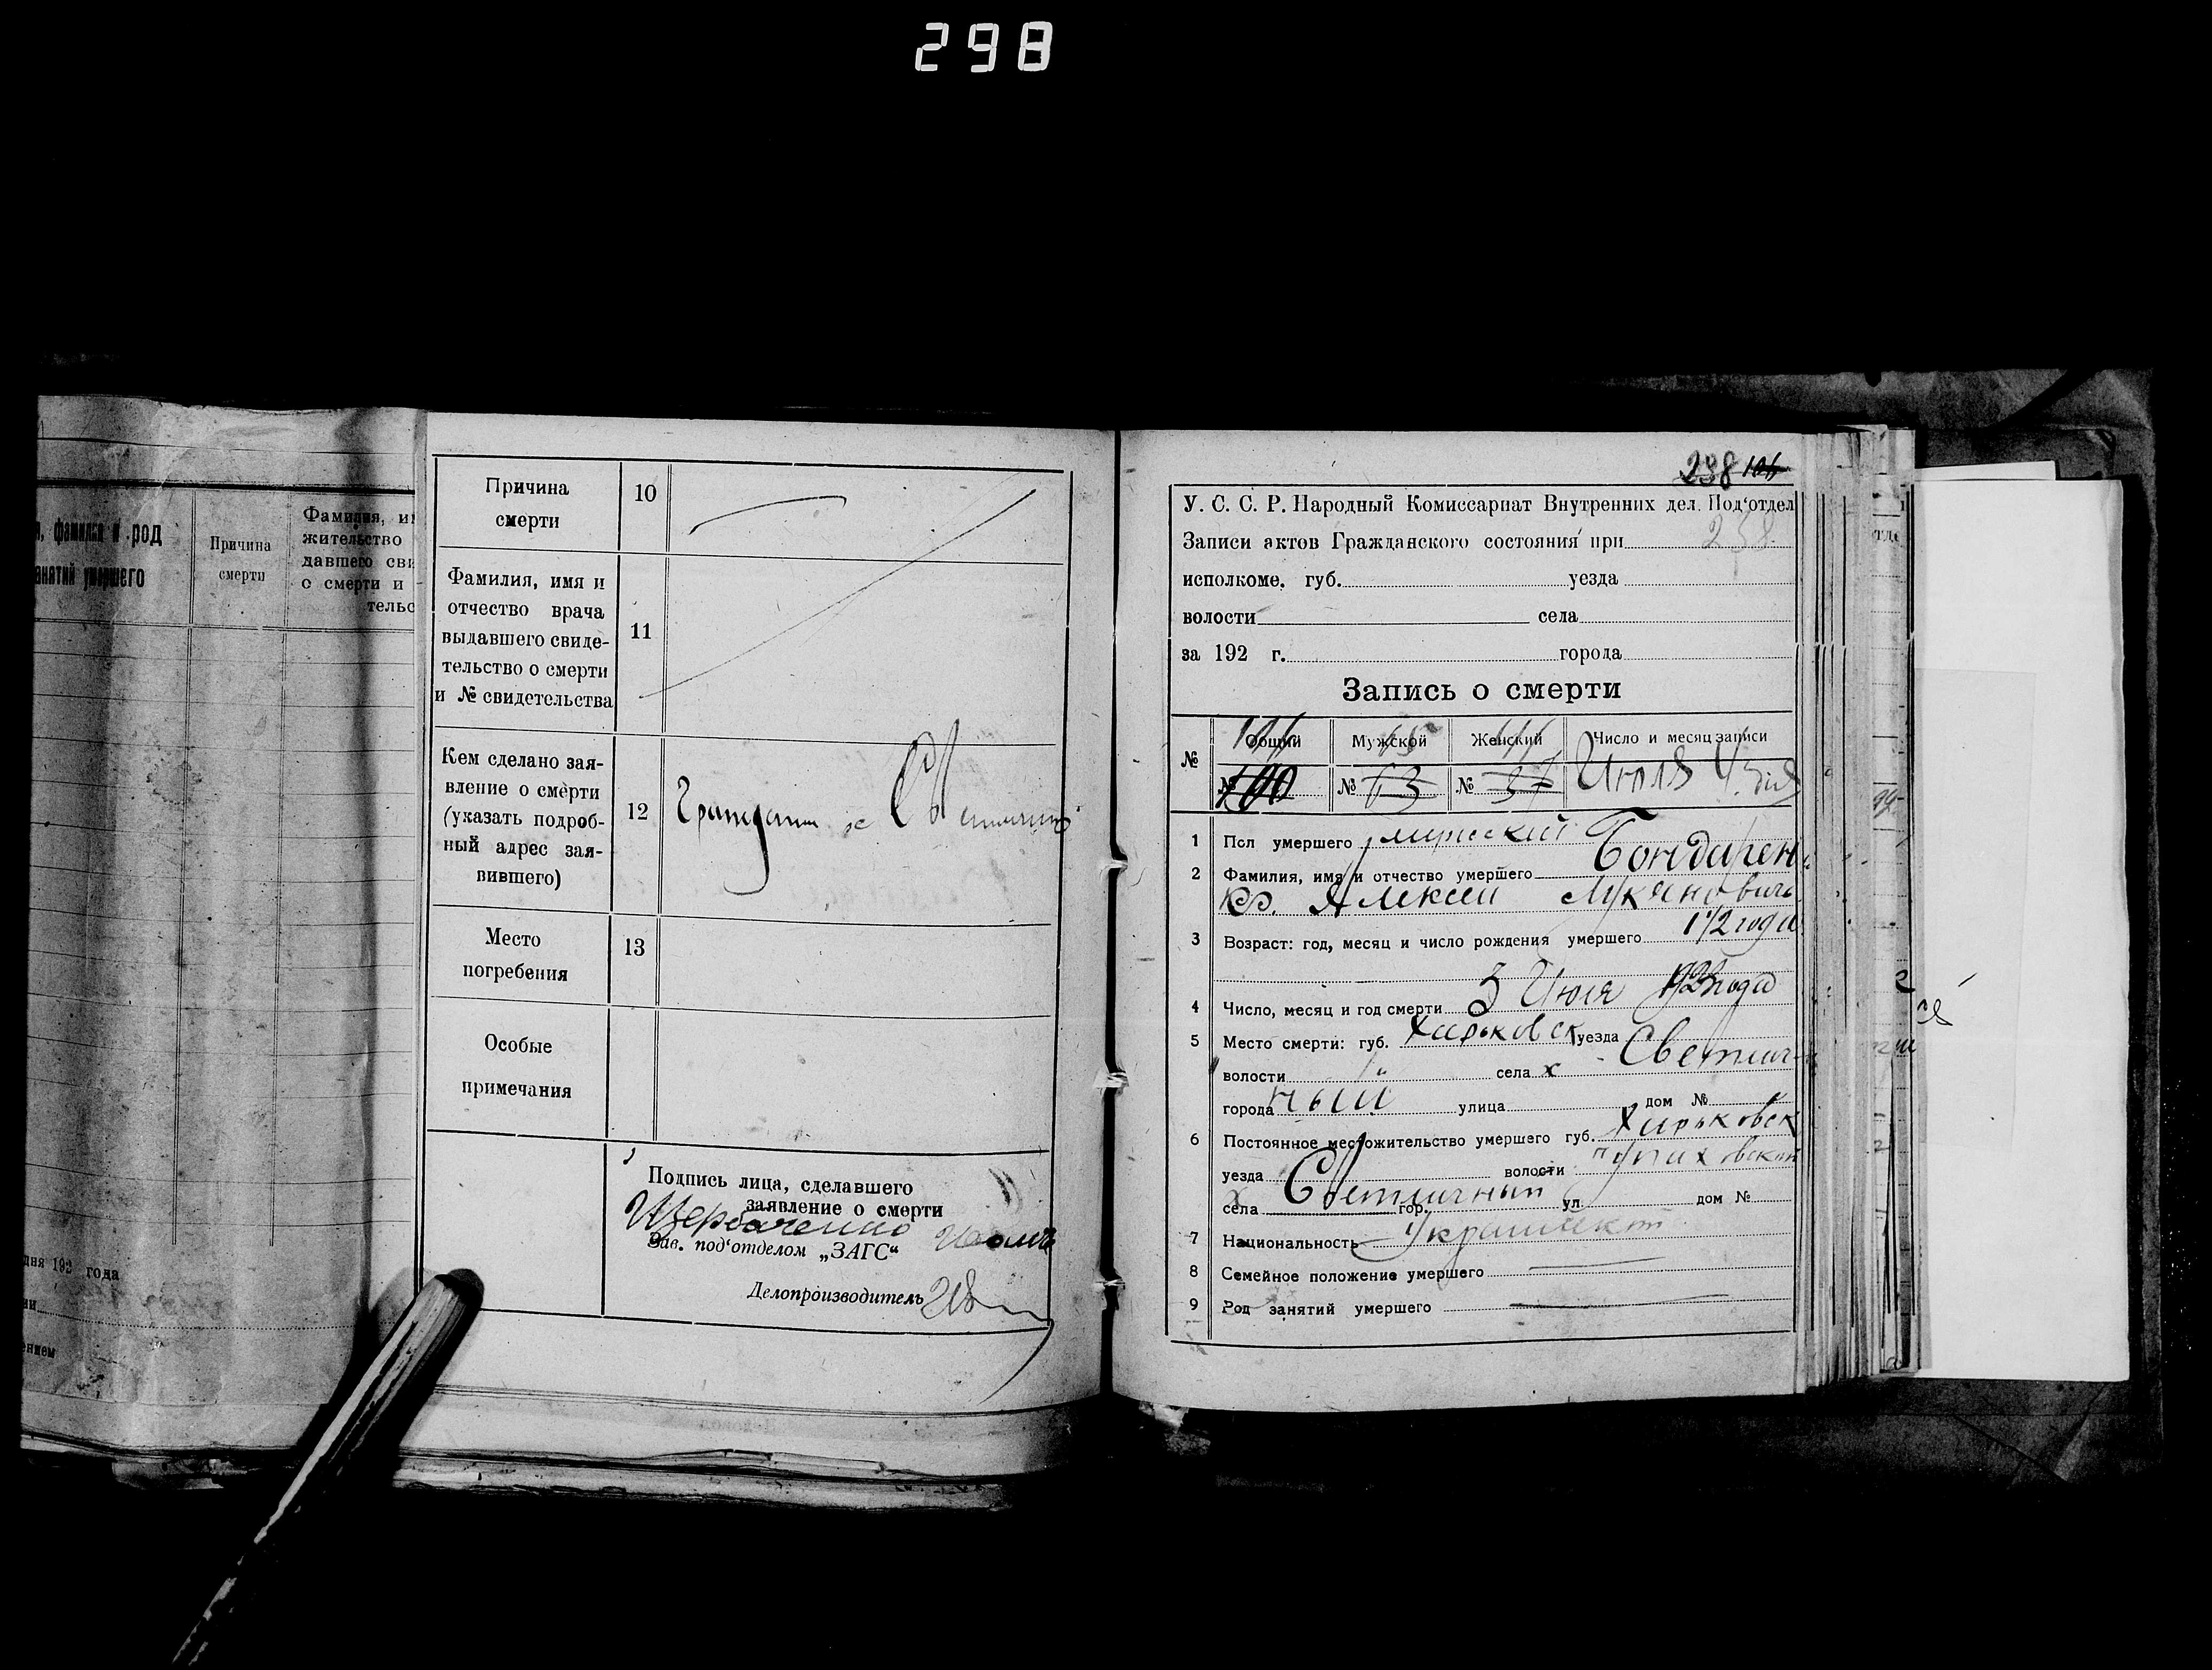 298
, фамилия и род
занятий умершего
Причина
смерти
Фамилия, и
жительство
давшего сви
о смерти и
тельс
дня 192 года
Причина
смерти
10
Фамилия, имя и
отчество врача
выдавшего свиде-
тельство о смерти
и № свидетельства
11
Кем сделано зая-
вление о смерти
(указать подроб-
ный адрес зая-
вившего)
12
Место
погребения
13
Особые
примечания
Подпись лица, сделавшего
заявление о смерти
Зав. под'отделом „ЗАГС“
Делопроизводитель
238
У. С. С. Р. Народный Комиссариат Внутренних дел. Под'отдел
Записи актов Гражданского состояния при 238
исполкоме. губ. уезда
волости села
за 192 г. города
Запись о смерти
№ Общий Мужской Женский Число и месяц записи
№ 100 № 63 № 37 Июля 4 дня
1 Пол умершего мужский
2 Фамилия, имя и отчество умершего Бондарен
ко Алексей Лукянович
3 Возраст: год, месяц и число рождения умершего 1 1/2 года
4 Число, месяц и год смерти 3 Июля 1923 года
5 Место смерти: губ. Харьковск уезда
волости села х Светлич
города ный улица дом №
6 Постоянное местожительство умершего губ. Харьковск
уезда волости
села х Светличный гор. ул. дом №
7 Национальность
8 Семейное положение умершего
9 Род занятий умершего